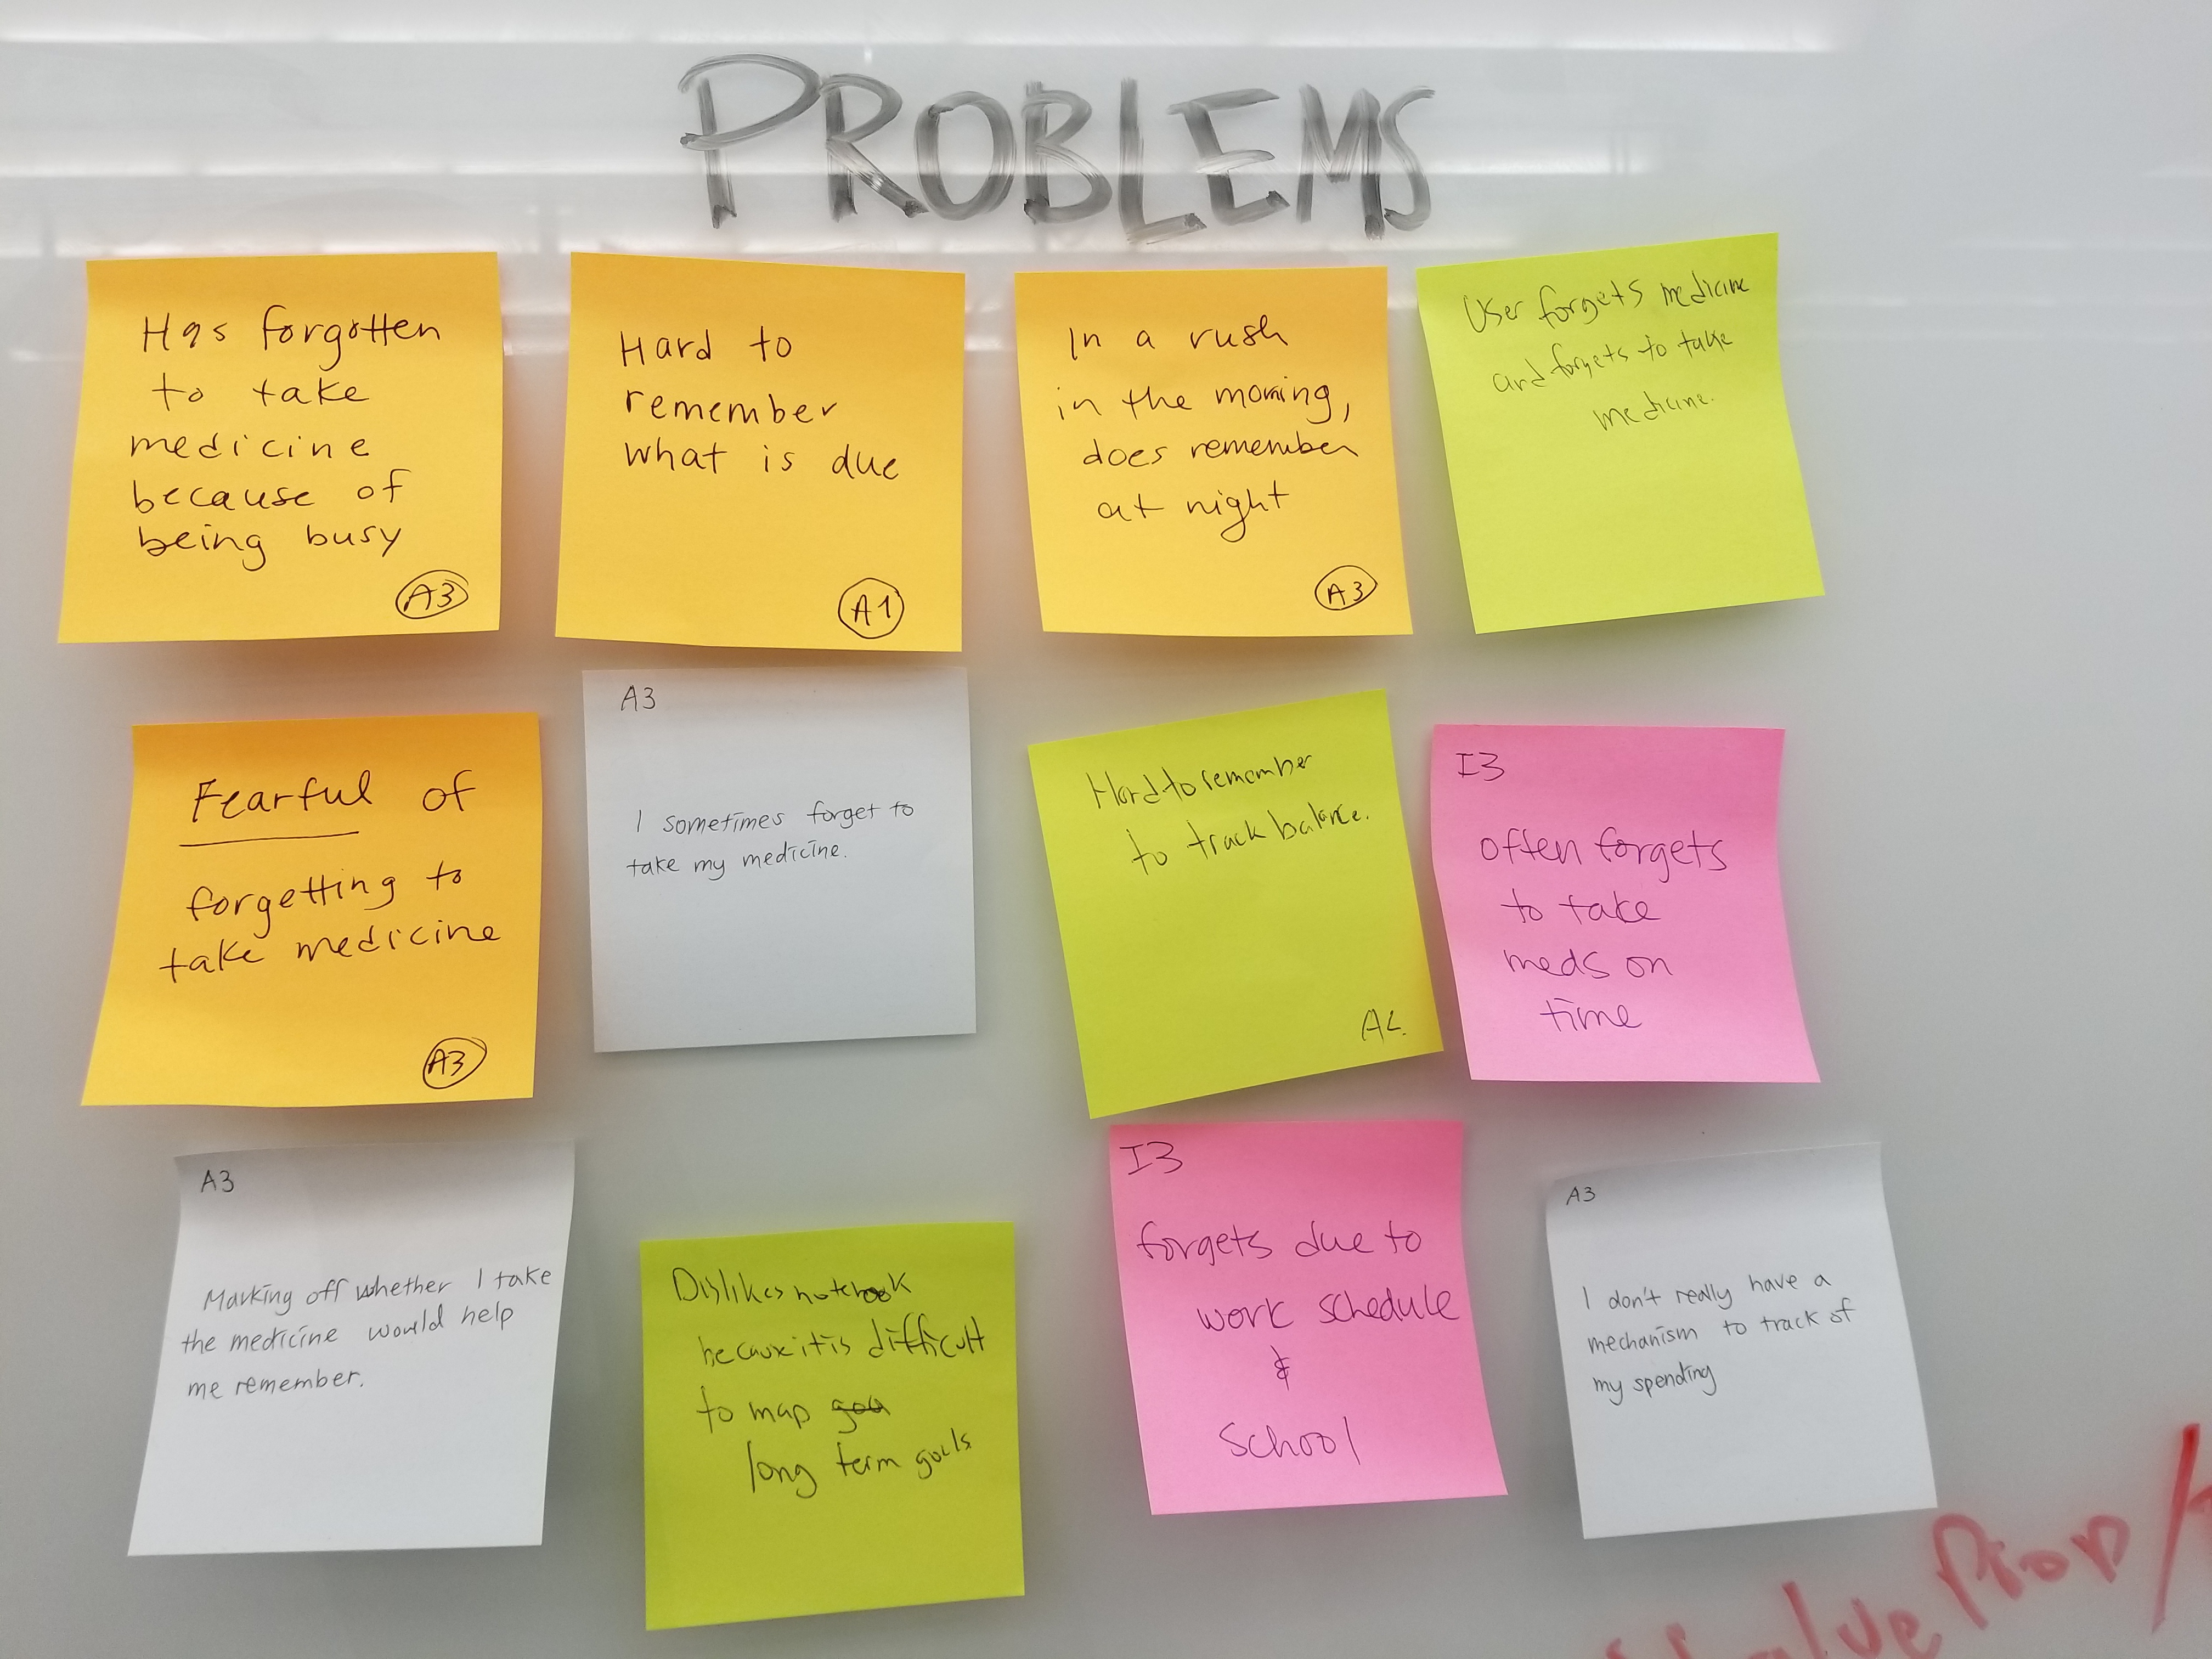 PROBLEMS
Has forgotten
to take
medicine
because of
being busy
A3
Hard to
remember
what is due
A1
In a rush
in the morning,
does remember
at night
A3
User forgets medicine
and forgets to take
medicine.
Fearful of
forgetting to
take medicine
A3
A3
I sometimes forget to
take my medicine.
Hard to remember
to track balance.
I3
often forgets
to take
meds on
time
A3
Marking off whether I take
the medicine would help
me remember.
Dislikes notebook
because it is difficult
to map goa
long term goals
I3
forgets due to
work schedule
&
school
A3
I don't really have a
mechanism to track of
my spending
Value Prop /